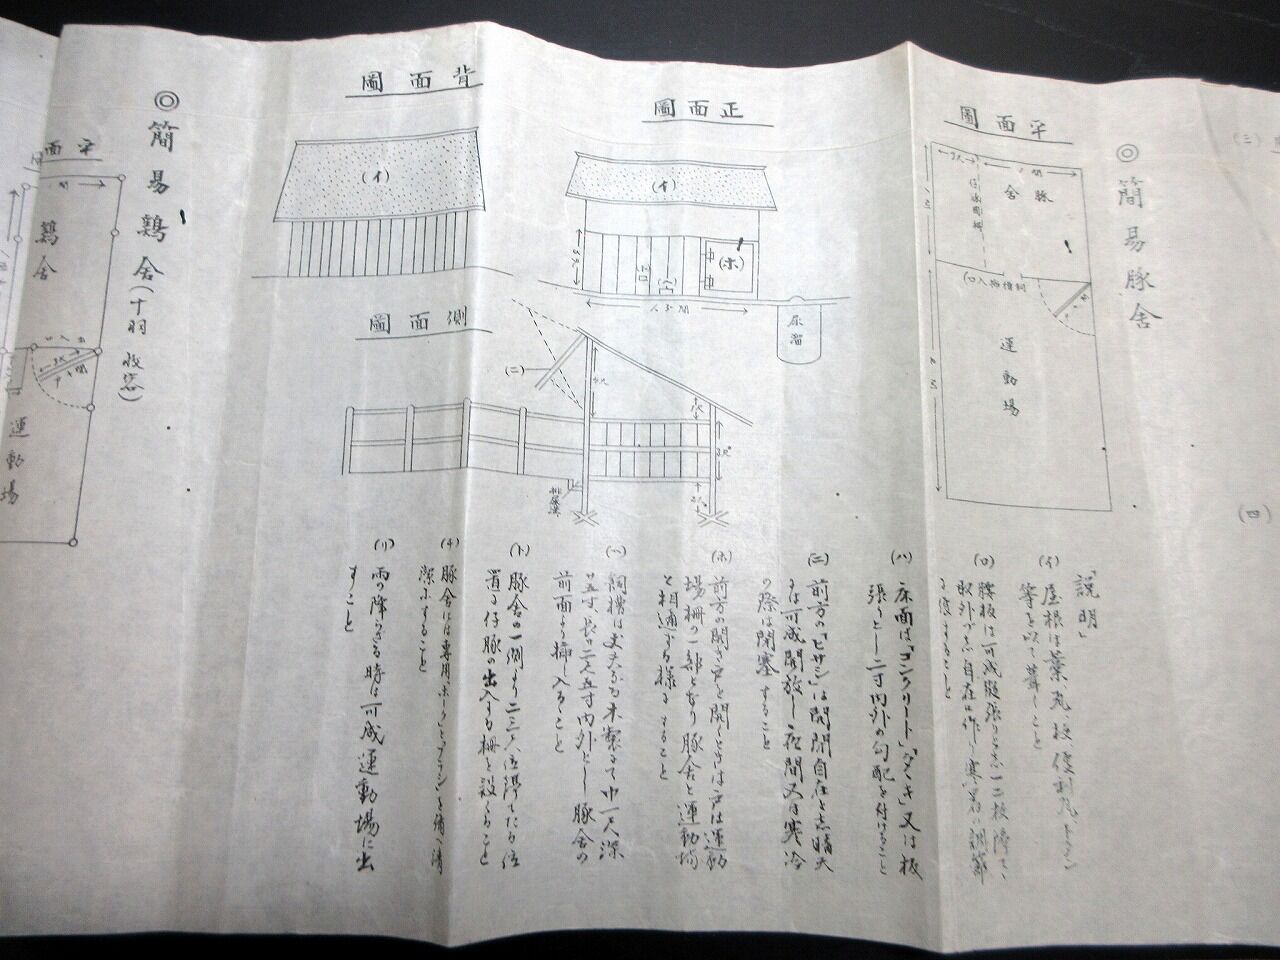 (三)
(四)
◎簡易豚舎
平面圖
豚舎
一間
運動場
正面圖
(イ)
(ホ)
尿溜
背面圖
(イ)
側面圖
(ニ)
「説明」
(イ) 屋根は藁、瓦、板、便利瓦、トタン
等を以て葺くこと
(ロ) 腰板は可成竪張りとし一二枚隔て、
取外し自在に作り寒暑に調節
(ハ) 床面は「コンクリート」「タヽキ」又は板
張りとし一二寸内外の勾配を付けること
(ニ) 前方の「ヒサシ」は開閉自在とし晴天
には可成開放し夜間又は寒冷
の際は閉塞すること
(ホ) 前方の開き戸を開くときは戸は運動
場柵の一部となり豚舎と運動場
と相通ずる様にすること
(ヘ) 飼槽は丈夫なる木製にて巾一尺深
サ五寸、長サ二尺五寸内外とし豚舎の
前面より挿し入ること
(ト) 豚舎の一側より二三尺位隔てたる位
置に仔豚の出入する柵を設くること
(チ) 豚舎には専用ホークとブラシを備へ清
潔にすること
(リ) 雨の降らざる時は可成運動場に出
すこと
◎簡易鶏舎(十羽収容)
平面圖
一間
鶏舎
出入口
運動場